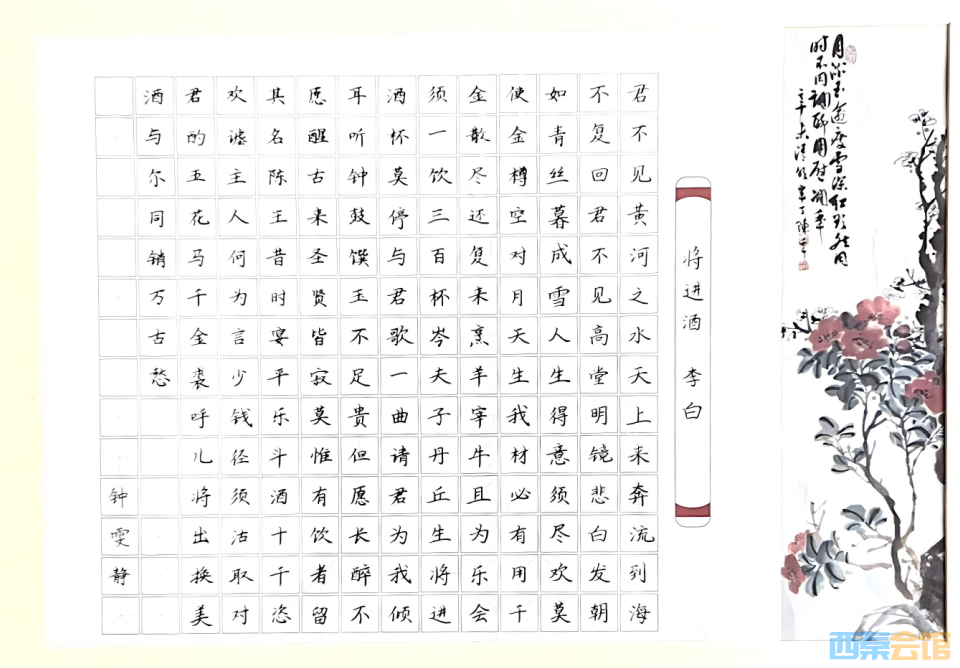 将进酒 李白
君不见黄河之水天上来奔流到海
不复回君不见高堂明镜悲白发朝
如青丝暮成雪人生得意须尽欢莫
使金樽空对月天生我材必有用千
金散尽还复来烹羊宰牛且为乐会
须一饮三百杯岑夫子丹丘生将进
酒杯莫停与君歌一曲请君为我倾
耳听钟鼓馔玉不足贵但愿长醉不
愿醒古来圣贤皆寂莫惟有饮者留
其名陈王昔时宴平乐斗酒十千恣
欢谑主人何为言少钱径须沽取对
君酌五花马千金裘呼儿将出换美
酒与尔同销万古愁
钟雯静
西秦会馆